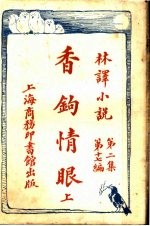 林譯小說
第二集
第十七編
香鉤情眼
上
上海商務印書館出版